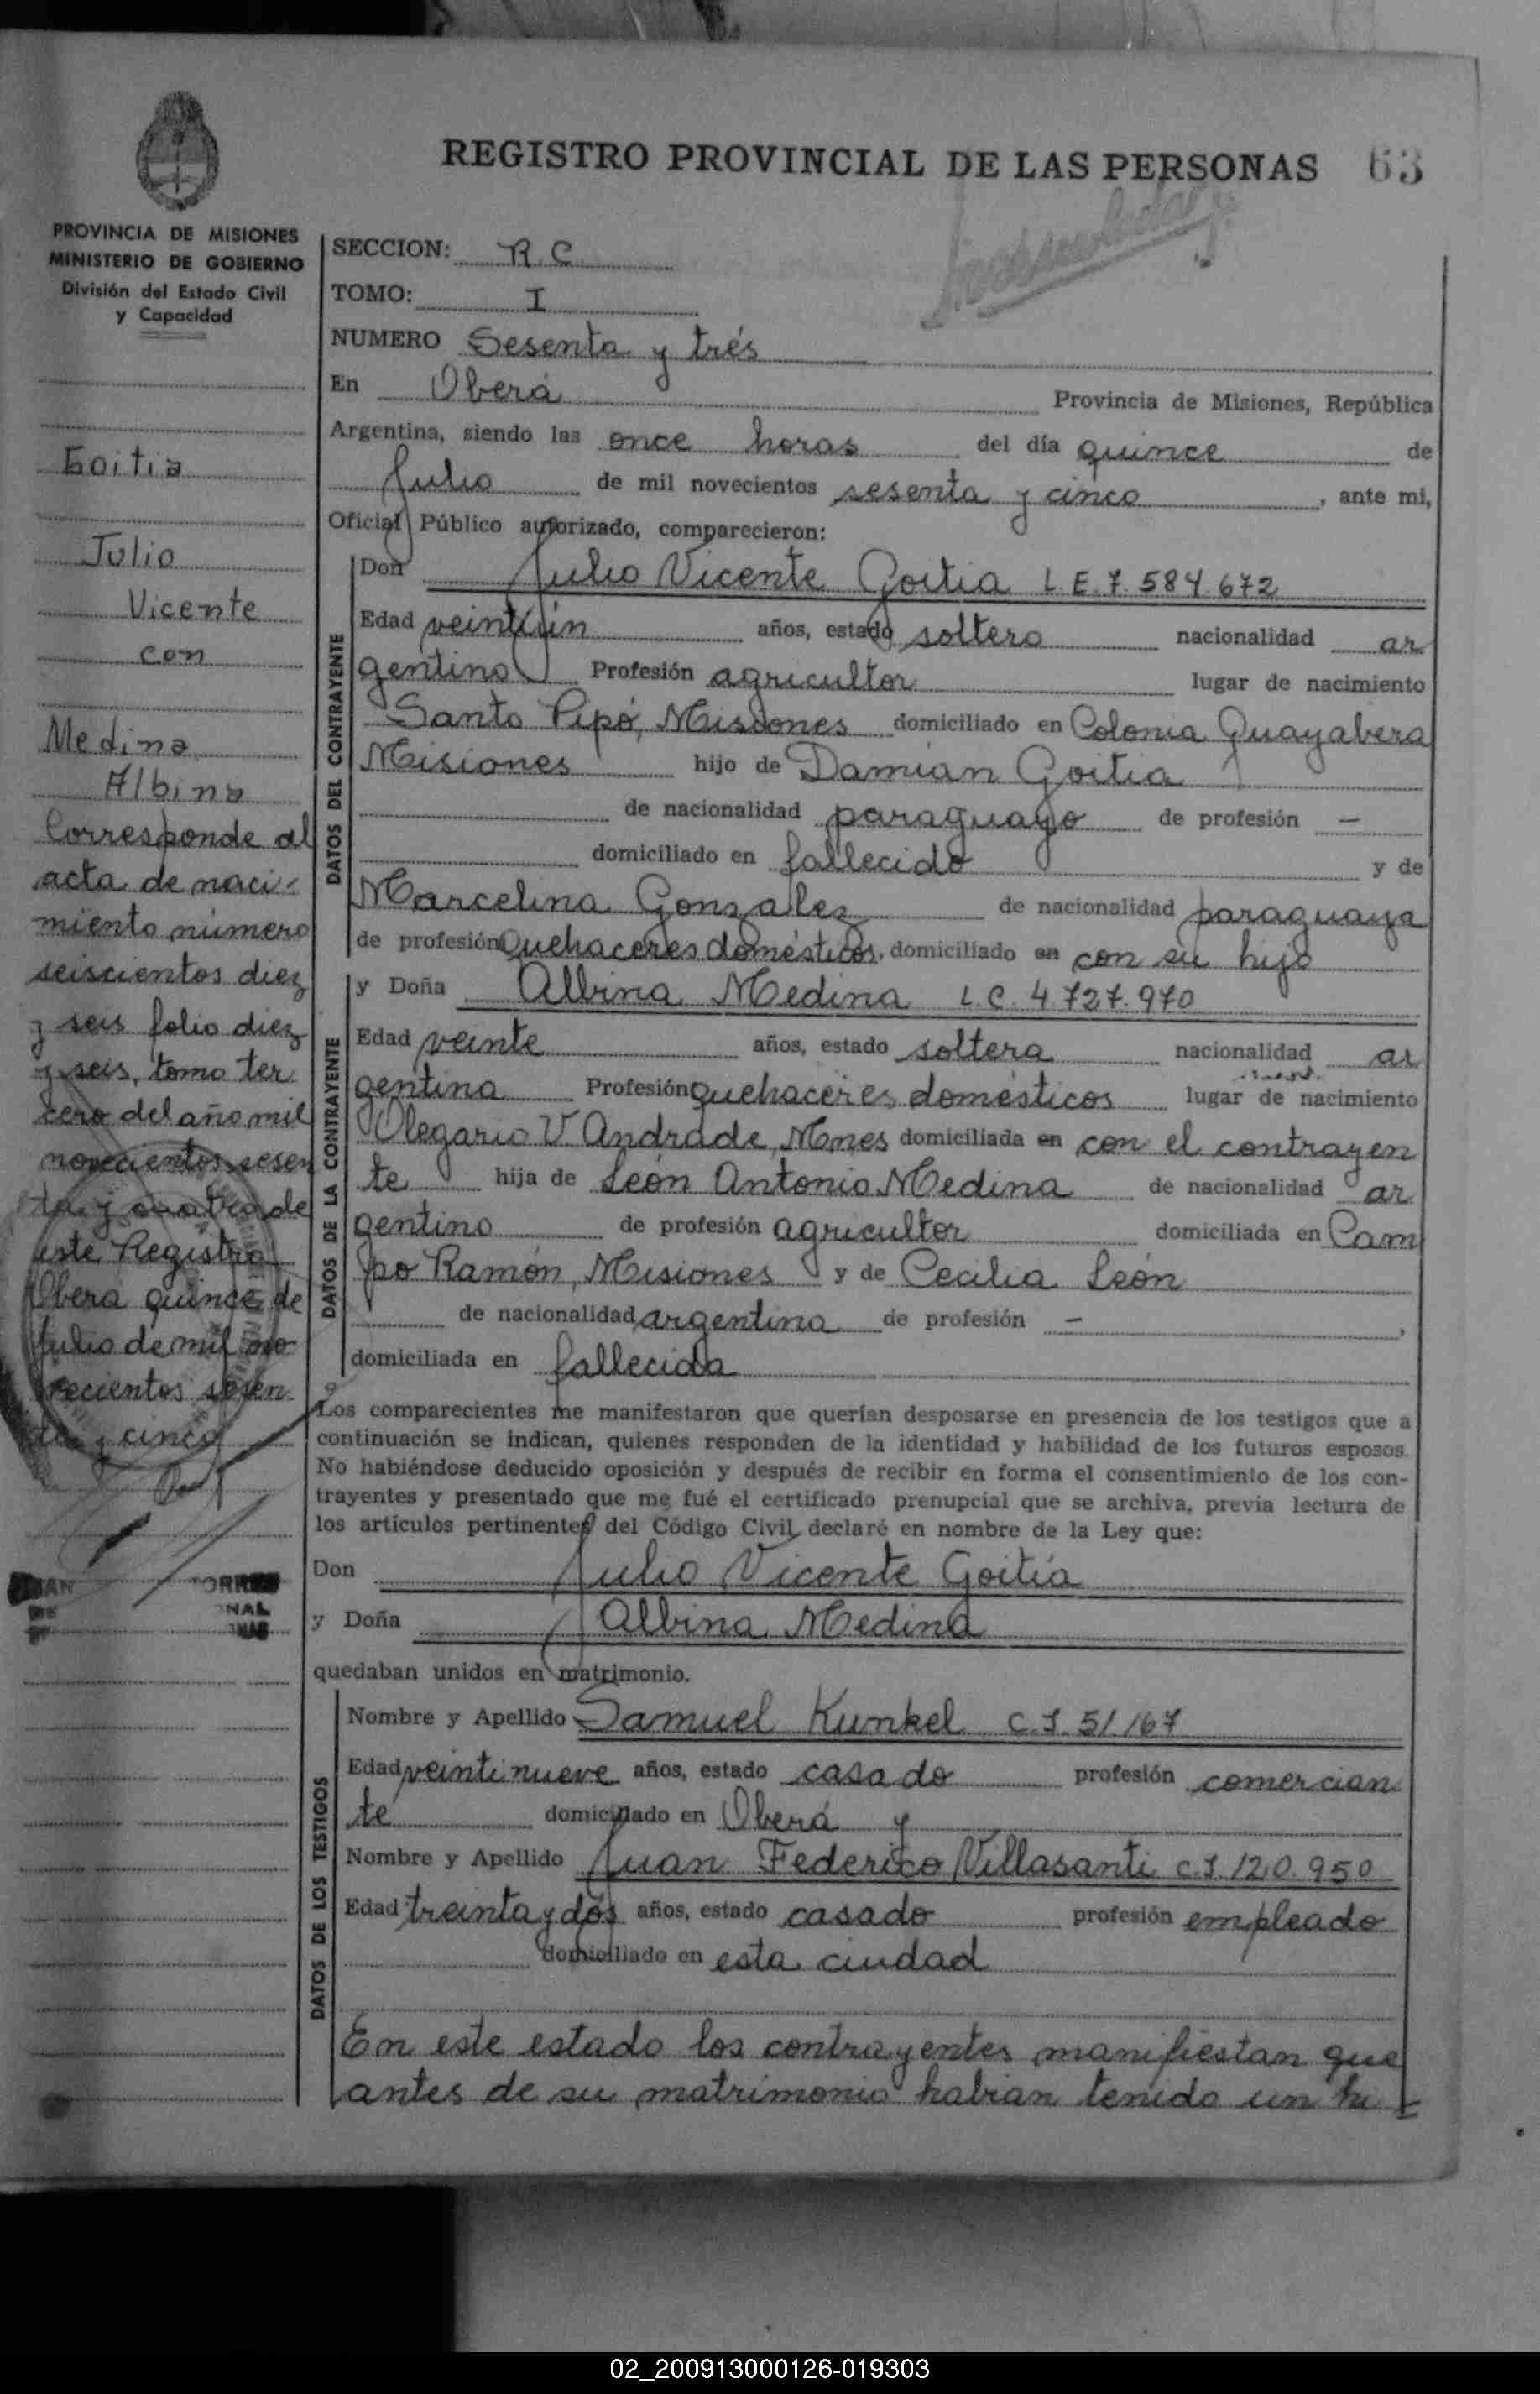 REGISTRO PROVINCIAL DE LAS PERSONAS 63
PROVINCIA DE MISIONES
MINISTERIO DE GOBIERNO
División del Estado Civil
y Capacidad
Goitia
Julio
Vicente
con
Medina
Albina
Corresponde al
acta de naci-
miento número
seiscientos diez
y seis folio diez
y seis, tomo ter
cero del año mil
novecientos sesen
ta y cuatro de
este Registro
Oberá quince de
Julio de mil no
vecientos sesen
ta y cinco
SECCION: R. C.
TOMO: I
NUMERO Sesenta y trés
En Oberá Provincia de Misiones, República
Argentina, siendo las once horas del día quince de
Julio de mil novecientos sesenta y cinco, ante mi,
Oficial Público autorizado, comparecieron:
DATOS DEL CONTRAYENTE
Don Julio Vicente Goitia L E. 7. 584. 672
Edad veintiún años, estado soltero nacionalidad ar
gentino Profesión agricultor lugar de nacimiento
Santo Pipó, Misiones domiciliado en Colonia Guayabera
Misiones hijo de Damián Goitia
de nacionalidad paraguayo de profesión —
domiciliado en fallecido y de
Marcelina Gonzalez de nacionalidad paraguaya
de profesión Quehaceres domésticos, domiciliado en con su hijo
DATOS DE LA CONTRAYENTE
y Doña Albina Medina L.C. 4.727.970
Edad veinte años, estado soltera nacionalidad ar
gentina Profesión quehaceres domésticos lugar de nacimiento
Olegario V. Andrade, Mnes domiciliada en con el contrayen
te hija de León Antonio Medina de nacionalidad ar
gentino de profesión agricultor domiciliada en Cam
po Ramón, Misiones y de Cecilia León
de nacionalidad argentina de profesión —,
domiciliada en fallecida
Los comparecientes me manifestaron que querían desposarse en presencia de los testigos que a
continuación se indican, quienes responden de la identidad y habilidad de los futuros esposos.
No habiéndose deducido oposición y después de recibir en forma el consentimiento de los con-
trayentes y presentado que me fué el certificado prenupcial que se archiva, previa lectura de
los artículos pertinentes del Código Civil declaré en nombre de la Ley que:
Don Julio Vicente Goitia
y Doña Albina Medina
quedaban unidos en matrimonio.
DATOS DE LOS TESTIGOS
Nombre y Apellido Samuel Kunkel C.I. 51 167
Edad veintinueve años, estado casado profesión comercian
te domiciliado en Oberá y
Nombre y Apellido Juan Federico Villasanti C.I. 120.950
Edad treinta y dós años, estado casado profesión empleado
domiciliado en esta ciudad
En este estado los contrayentes manifiestan que
antes de su matrimonio habian tenido un hi
02_200913000126-019303